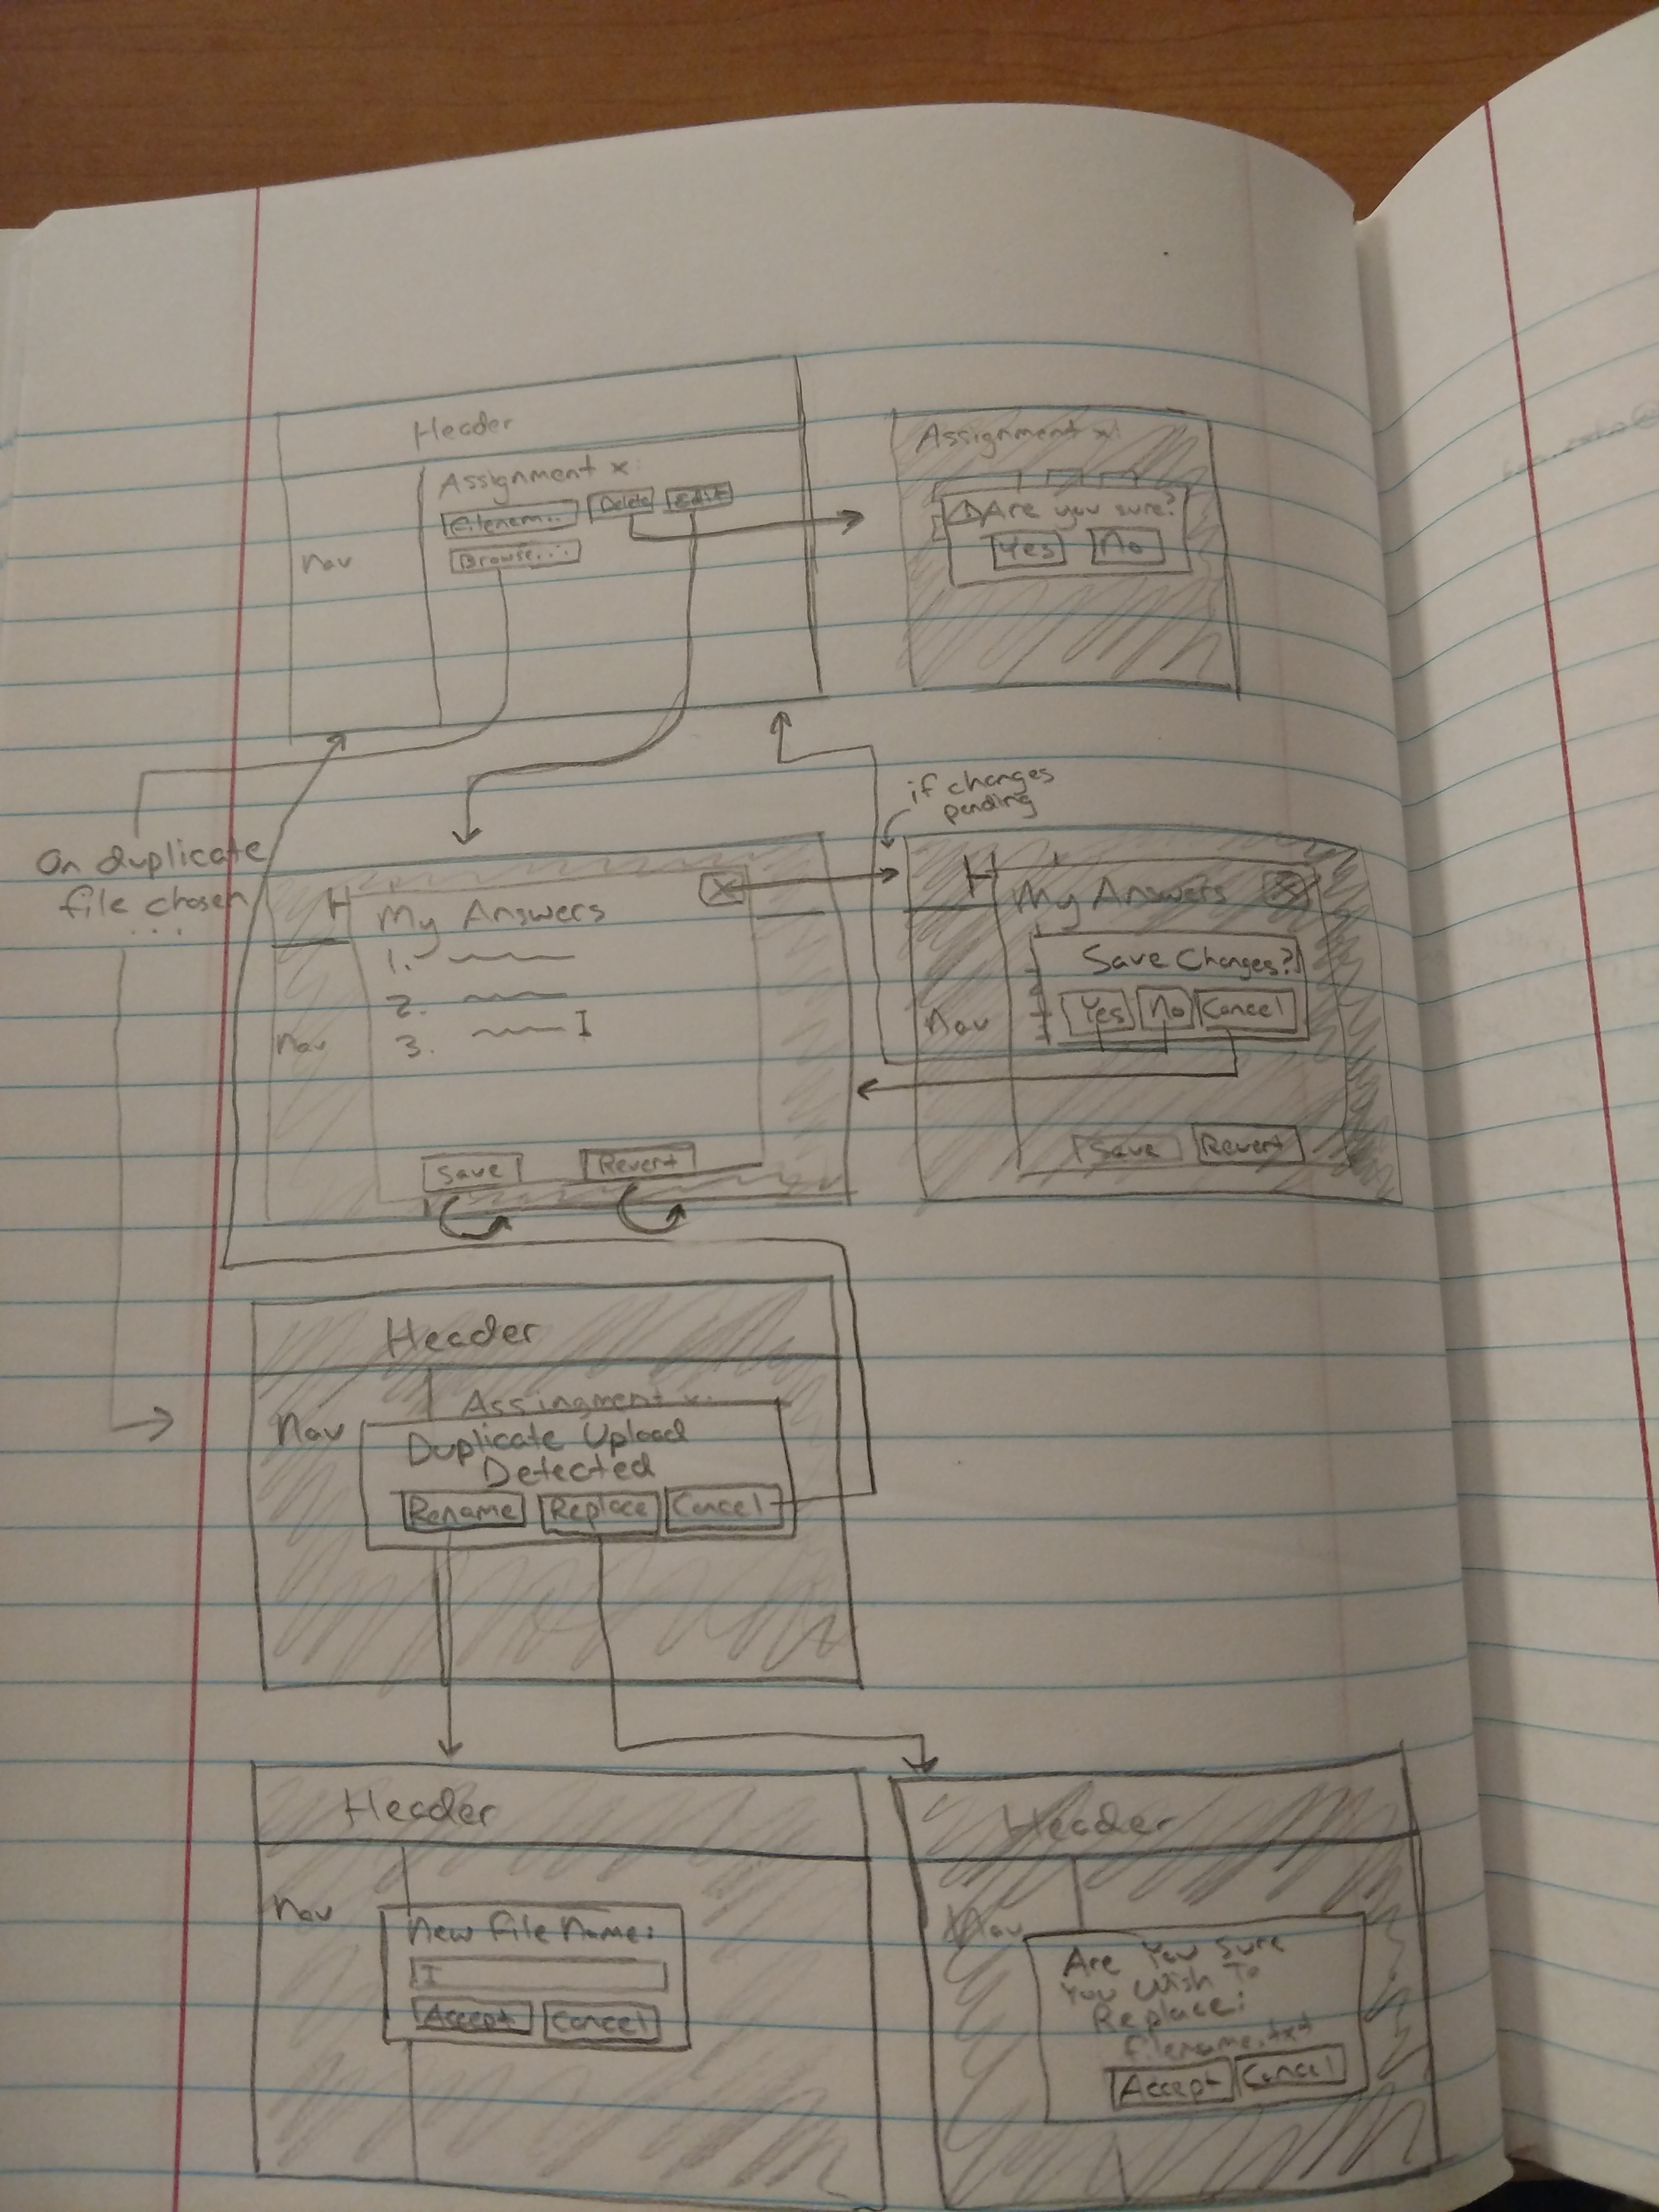 Header
Assignment x:
Filenam... Delete Edit
Browse...
Nav
Assignment x:
Are you sure?
Yes No
if changes
pending
On duplicate
file chosen
...
H
My Answers X
1.
2.
3. I
Nav
Save Revert
H
My Answers X
Save Changes?
Yes No Cancel
Nav
Save Revert
Header
Assingment x:
Nav
Duplicate Upload
Detected
Rename Replace Cancel
Header
Nav
New File Name:
I
Accept Cancel
Header
Nav
Are You Sure
You Wish To
Replace:
filename.txt
Accept Cancel